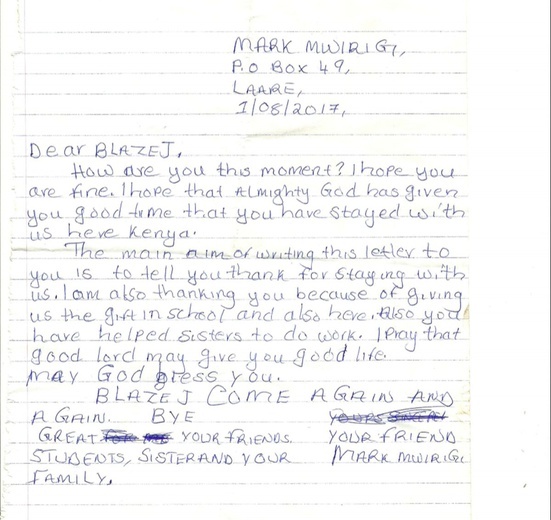 MARK MWIRIGI,
P.O BOX 49,
LAARE,
1/08/2017,
Dear BLAZEJ,
How are you this moment? I hope you
are fine. I hope that Almighty God has given
you good time that you have stayed with
us here Kenya.
The main aim of writing this letter to
you is to tell you thank for staying with
us. I am also thanking you because of giving
us the gift in school and also here. Also you
have helped sisters to do work. I Pray that
good lord may give you good life.
may God bless you.
BLAZEJ COME AGAIN AND
AGAIN. BYE
GREAT YOUR FRIENDS. YOUR FRIEND
STUDENTS, SISTER AND YOUR MARK MWIRIGI
FAMILY.